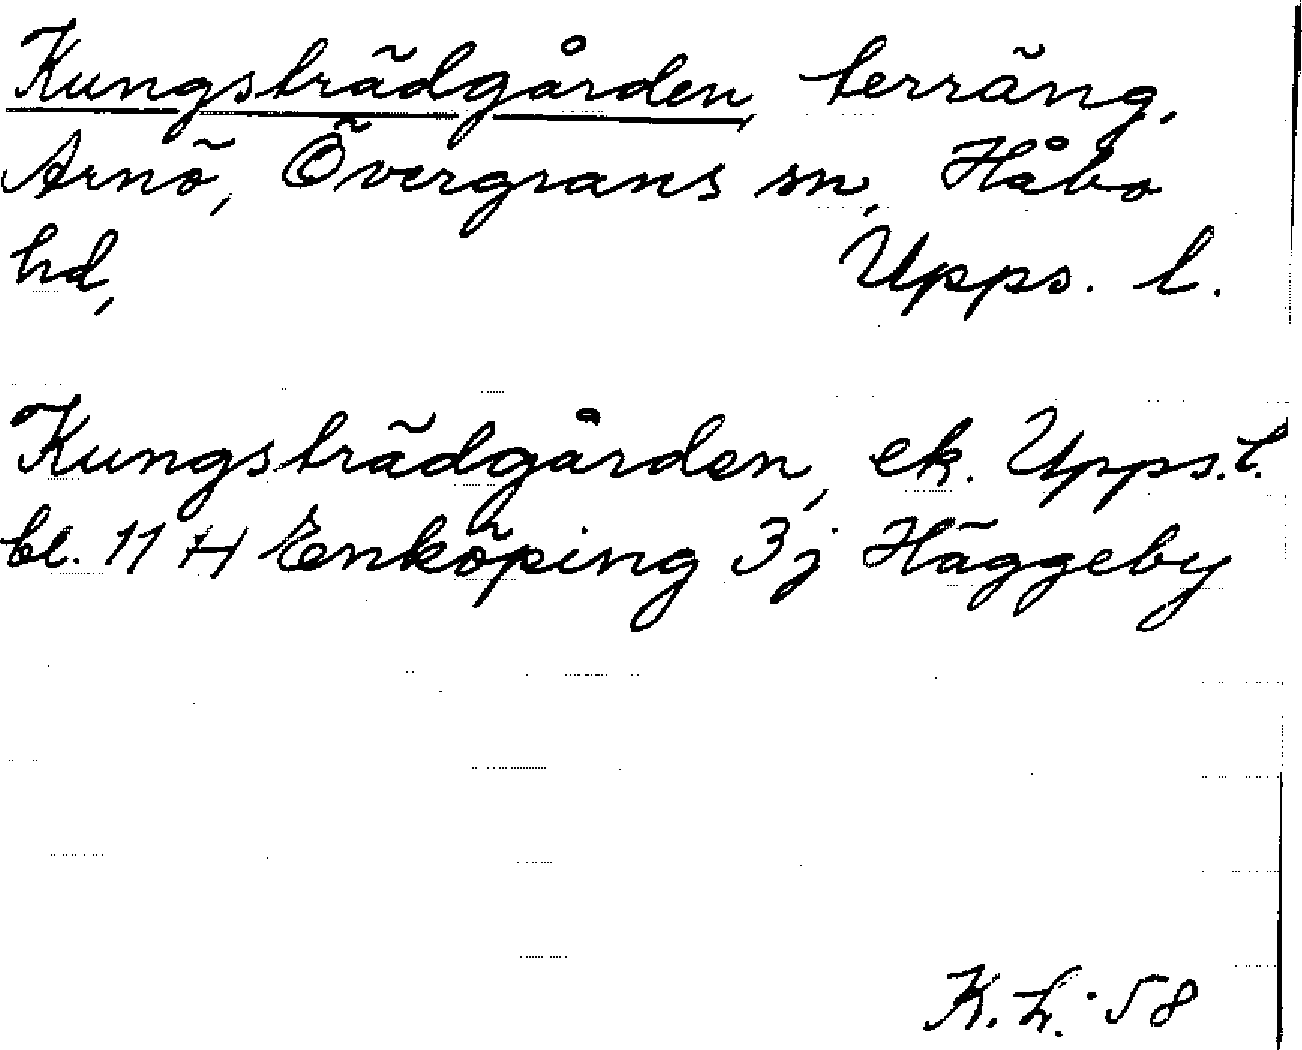 Kungsträdgården, terräng,
Arnö, Övergrans sn, Håbo
hd, Upps. l.
Kungsträdgården, ek. Upps. l.
bl. 11 H Enköping 3j Häggeby
K. h. 58